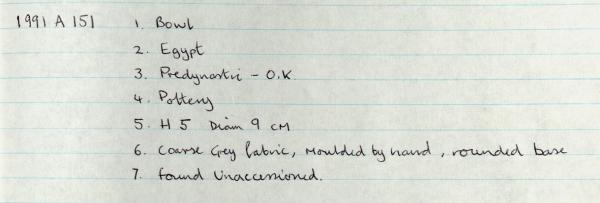 1991 A 151 1. Bowl
2. Egypt
3. Predynastic - O.K.
4. Pottery
5. H 5 Diam 9 CM
6. Coarse Grey fabric, moulded by hand, rounded base
7. Found Unaccessioned.